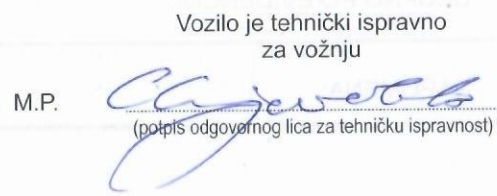 Vozilo je tehnički ispravno
za vožnju
M.P.
(potpis odgovornog lica za tehničku ispravnost)